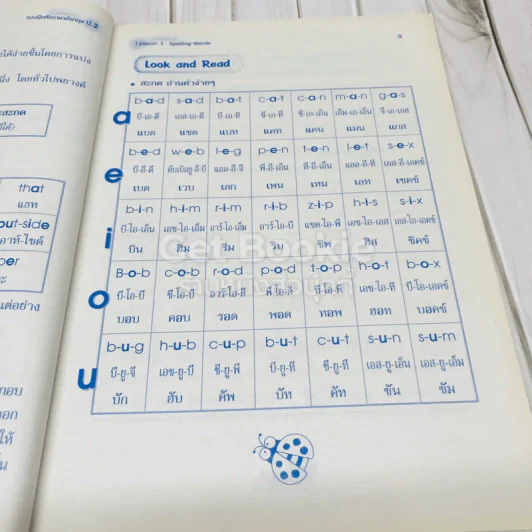 แบบฝึกทักษะภาษาอังกฤษ ป.2
ได้ง่ายขึ้นโดยการแบ่ง
โดยทั่วไปพยางค์
that
แธท
out-side
เอาท์-ไซด์
per
แต่อย่าง
Lesson 1 Spelling Words
9
Look and Read
สะกด อ่านคำง่ายๆ
a
b-a-d s-a-d b-a-t c-a-t c-a-n m-a-n g-a-s
บี-เอ-ดี เอส-เอ-ดี บี-เอ-ที ซี-เอ-ที ซี-เอ-เอ็น เอ็ม-เอ-เอ็น จี-เอ-เอส
แบด แซด แบท แคท แคน แมน แกส
e
b-e-d w-e-b l-e-g p-e-n t-e-n l-e-t s-e-x
บี-อี-ดี ดับเบิลยู-อี-บี แอล-อี-จี พี-อี-เอ็น ที-อี-เอ็น แอล-อี-ที เอส-อี-เอคซ์
เบด เวบ เลก เพน เทน เลท เซคซ์
i
b-i-n h-i-m r-i-m r-i-b z-i-p h-i-s s-i-x
บี-ไอ-เอ็น เอช-ไอ-เอ็ม อาร์-ไอ-เอ็ม อาร์-ไอ-บี แซด-ไอ-พี เอช-ไอ-เอส เอส-ไอ-เอคซ์
บิน ฮิม ริม ริบ ซิพ ฮิส ซิคซ์
Get Bookie
o
B-o-b c-o-b r-o-d p-o-d t-o-p h-o-t b-o-x
บี-โอ-บี ซี-โอ-บี อาร์-โอ-ดี พี-โอ-ดี ที-โอ-พี เอช-โอ-ที บี-โอ-เอคซ์
บอบ คอบ รอด พอด ทอพ ฮอท บอคซ์
u
b-u-g h-u-b c-u-p b-u-t c-u-t s-u-n s-u-m
บี-ยู-จี เอช-ยู-บี ซี-ยู-พี บี-ยู-ที ซี-ยู-ที เอส-ยู-เอ็น เอส-ยู-เอ็ม
บัก ฮับ คัพ บัท คัท ซัน ซัม